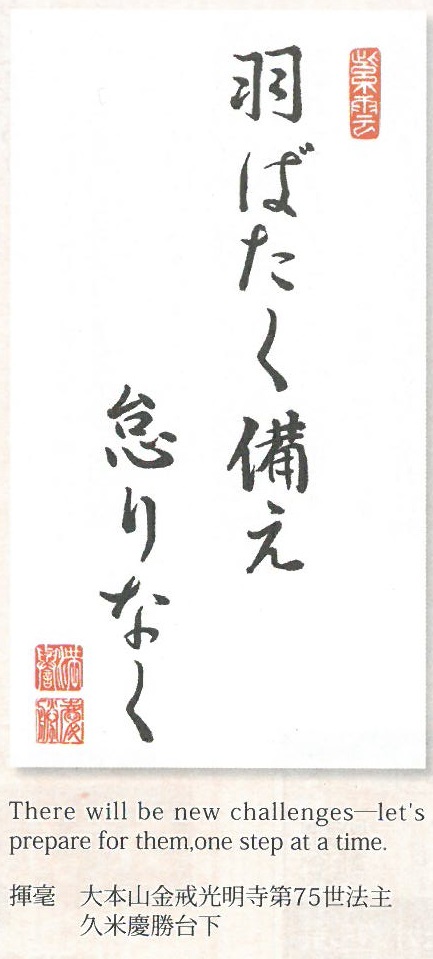 紫雲
羽ばたく備え
怠りなく
There will be new challenges—let's
prepare for them,one step at a time.
揮毫 大本山金戒光明寺第75世法主
久米慶勝台下